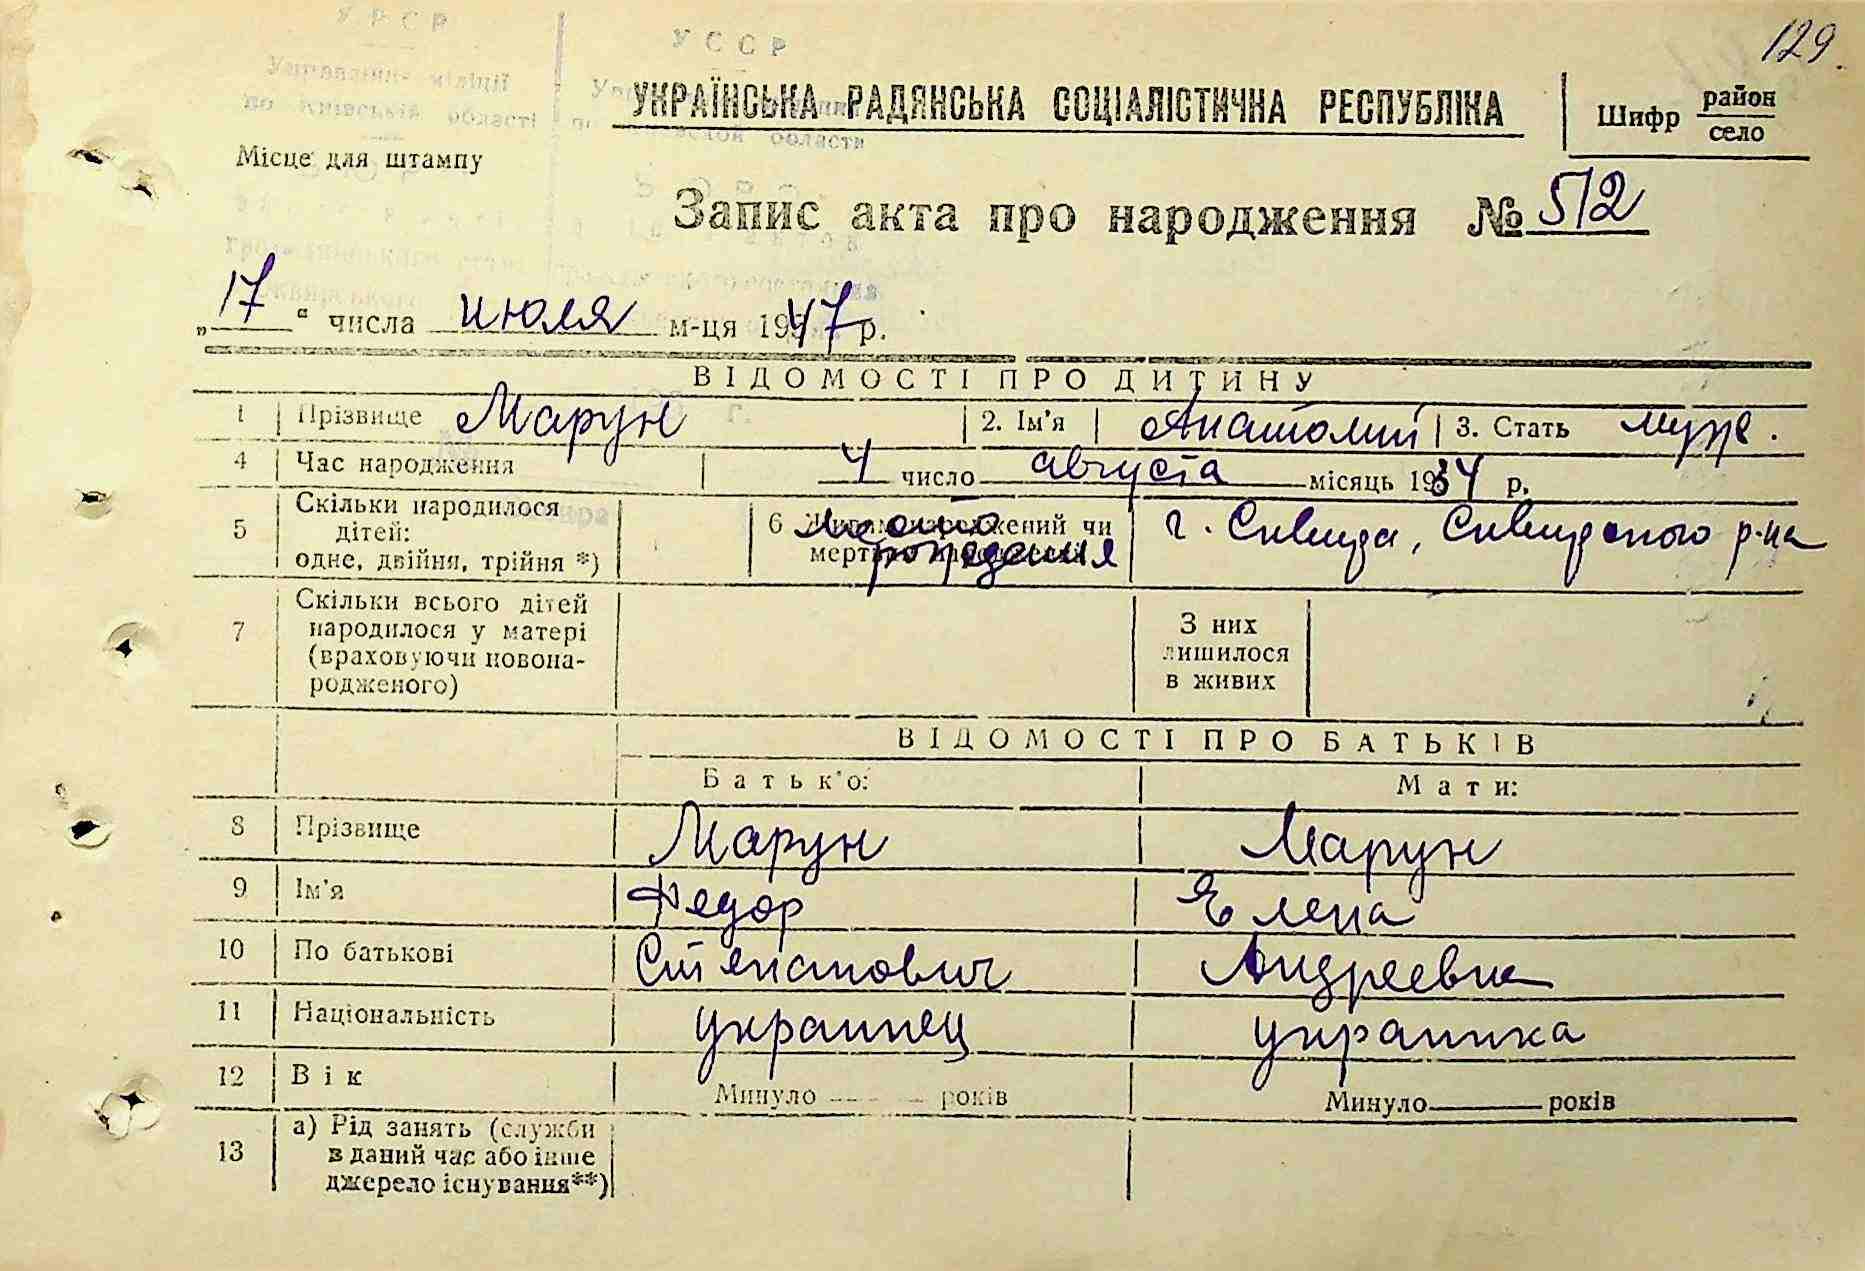 129.
УРСР
УССР
Управління міліції
по Київській області
области
УКРАЇНСЬКА РАДЯНСЬКА СОЦІАЛІСТИЧНА РЕСПУБЛІКА
Шифр район
село
Місце для штампу
Запис акта про народження № 512
„17“ числа июля м-ця 1947 р.
ВІДОМОСТІ ПРО ДИТИНУ
1 Прізвище Марун 2. Ім'я Анатолий 3. Стать муж.
4 Час народження 4 число августа місяць 1934 р.
5 Скільки народилося
дітей:
одне, двійня, трійня *)
6 Живим народжений чи
мертвим
Место
рождения
г. Сквира, Сквирского р-на
7 Скільки всього дітей
народилося у матері
(враховуючи новона-
родженого)
З них
лишилося
в живих
ВІДОМОСТІ ПРО БАТЬКІВ
Батько: Мати:
8 Прізвище Марун Марун
9 Ім'я Федор Елена
10 По батькові Степанович Андреевна
11 Національність украинец украинка
12 Вік Минуло років Минуло років
13 а) Рід занять (служби
в даний час або інше
джерело існування**)